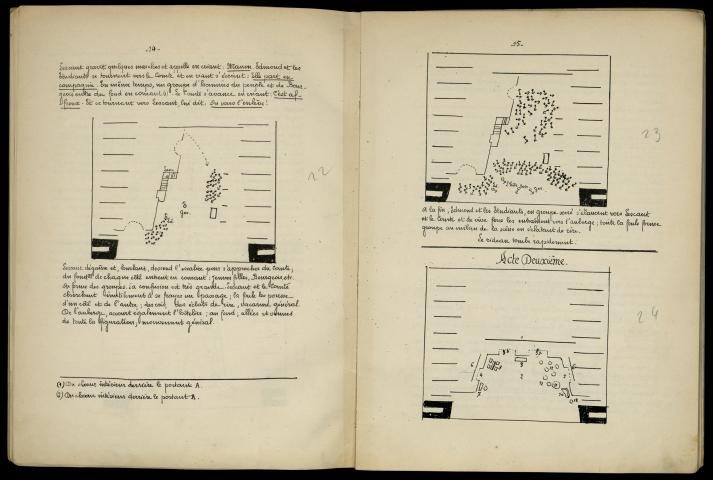 -14-
Lescaut gravit quelques marches et appelle en criant: Manon. Edmond et les
Etudiants se tournent vers le Comte et en riant s'écrient: Elle part en
compagnie. En même temps, un groupe d'hommes du peuple et de Bour-
geois entre du fond en courant. Le Comte s'avance en criant: C'est af-
freux. Et se tournant vers Lescaut, lui dit: On vous l'enlève!
22
Ger.
Lescaut dégaine et, hurlant, descend l'escalier pour s'approcher du Comte;
du fond et de chaque côté entrent en courant: jeunes filles, Bourgeois etc.
se forme des groupes. La confusion est très grande. Lescaut et le Comte
cherchent inutilement à se frayer un passage; la foule les pousse
d'un côté et de l'autre; des cris, des éclats de rire, vacarme général.
De l'auberge, accourt également l'hôtelier; au fond, allées et venues
de toute la figuration, mouvement général.
(1) Du chœur intérieur derrière le portant A.
(2) Du chœur intérieur derrière le portant A.
-15-
23
Ger.
A la fin, Edmond et les Etudiants, en groupe serré s'élancent vers Lescaut
et le Comte et de vive force les entraînent vers l'auberge; toute la foule forme
groupe au milieu de la scène en éclatant de rire.
Le rideau tombe rapidement.
Acte Deuxième.
24